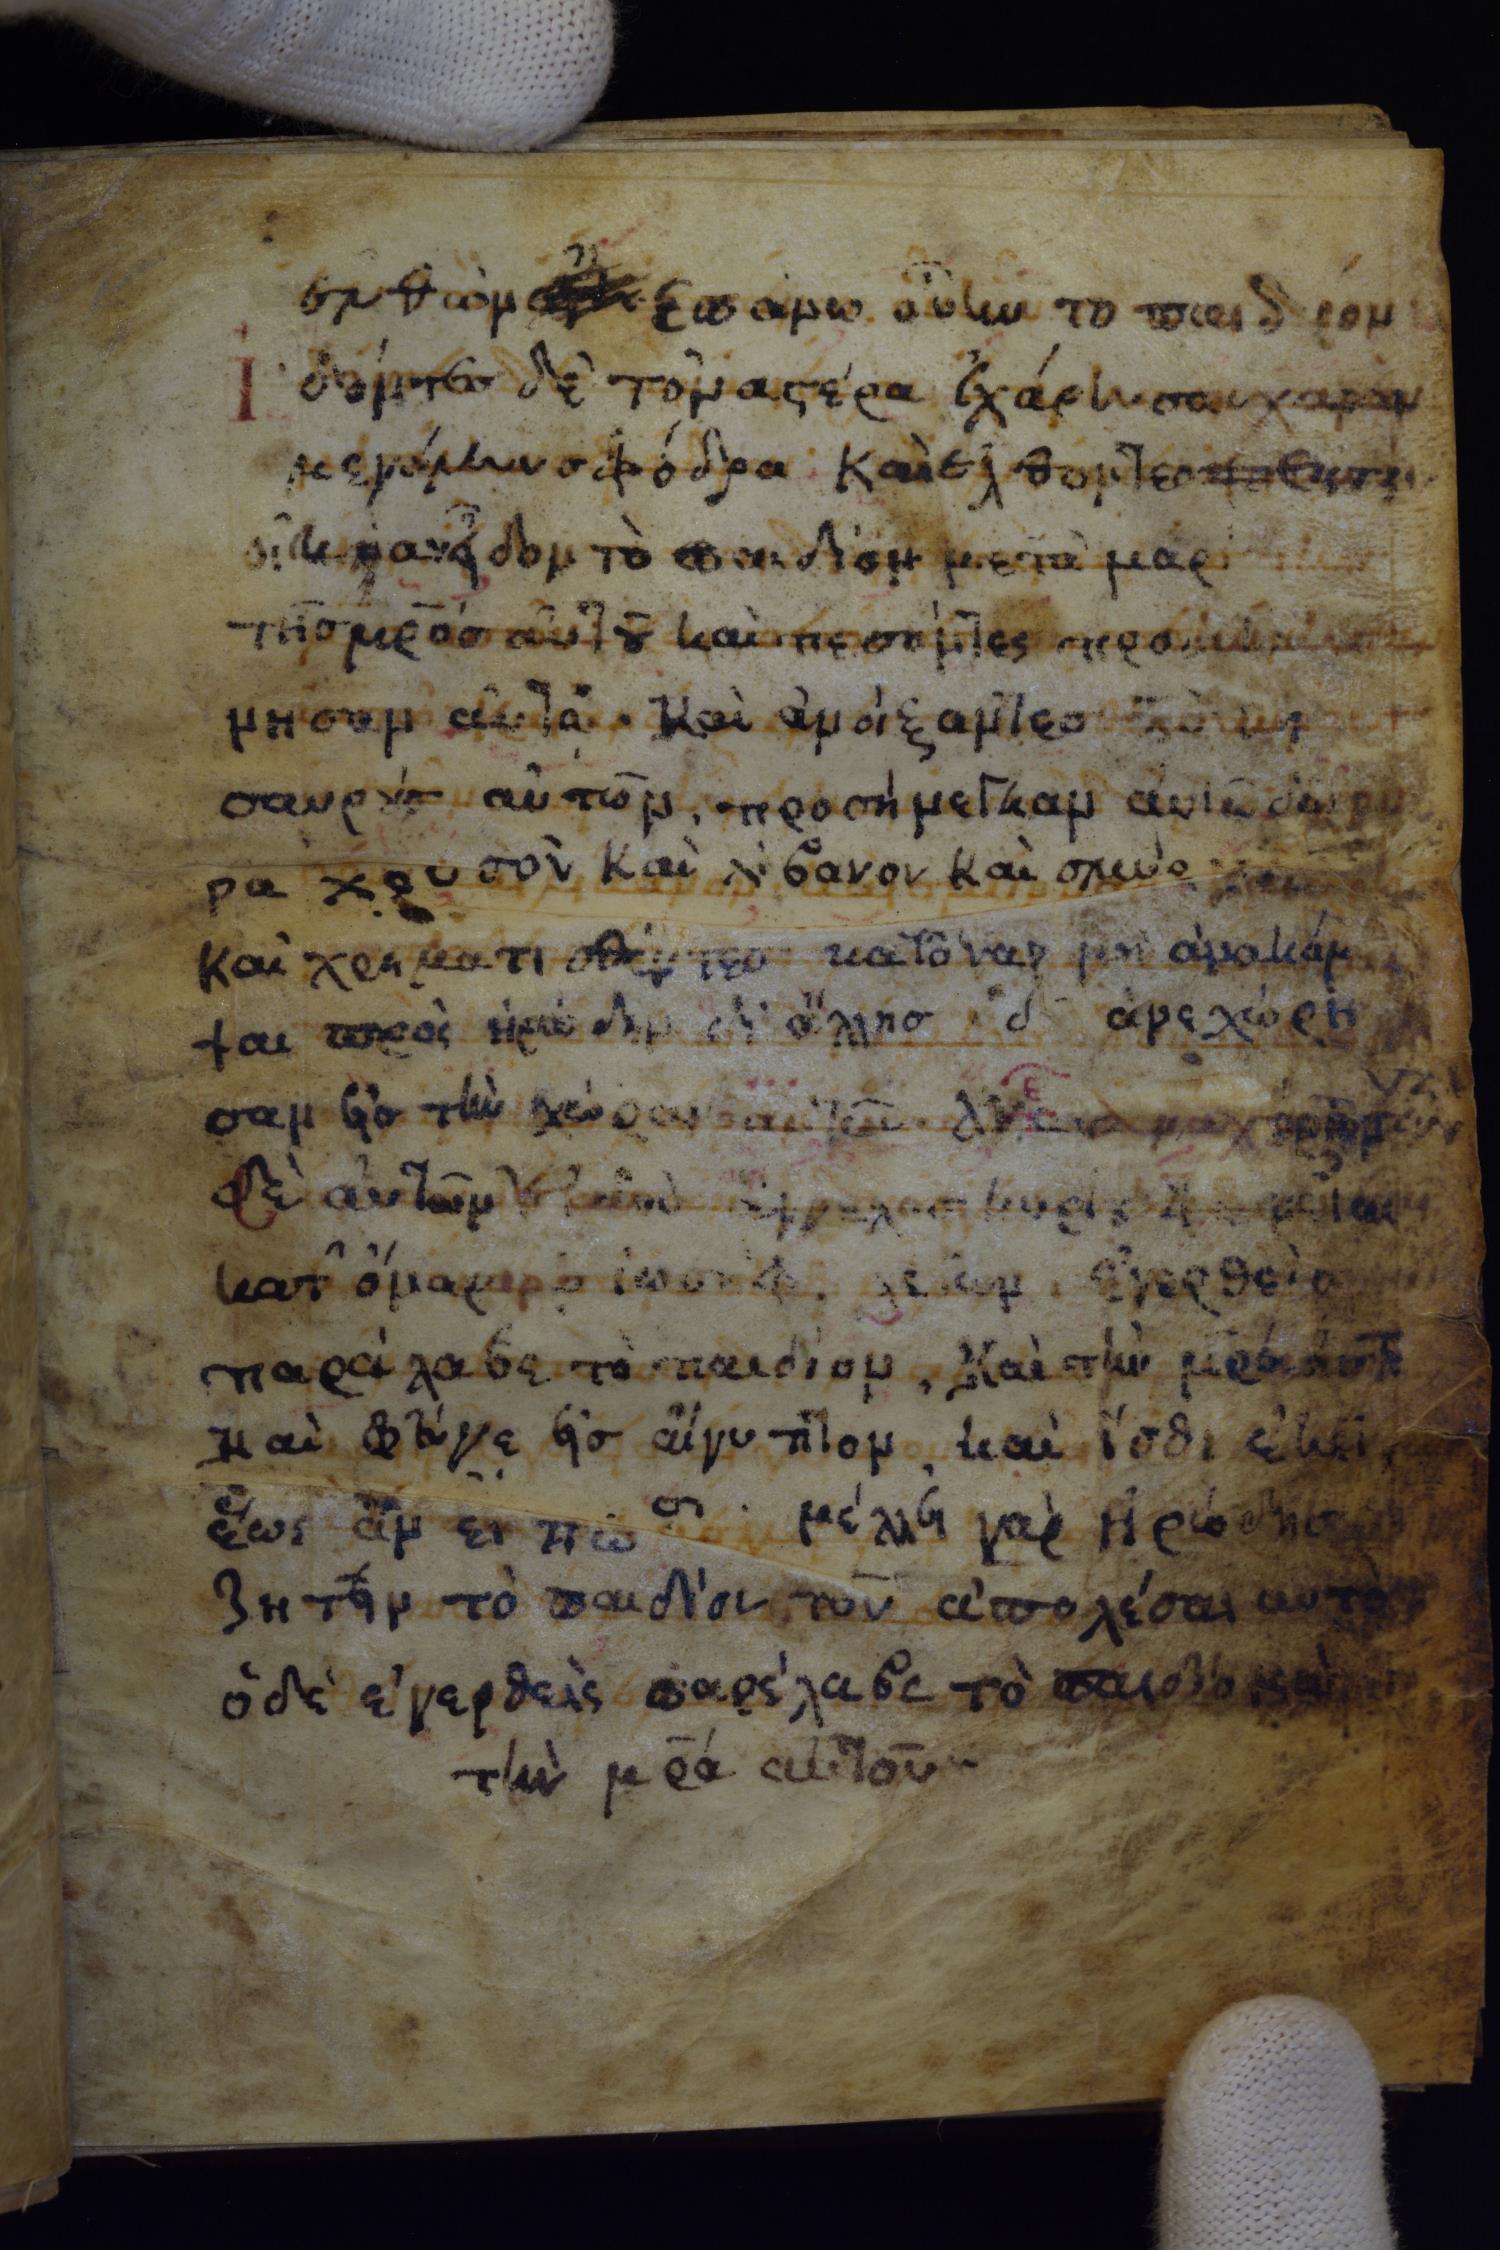 ἐλθὼν ἔστη ἐπάνω οὗ ἦν τὸ παιδίον
ἰδόντες δὲ τὸν ἀστέρα ἐχάρησαν χαρὰν
μεγάλην σφόδρα καὶ ἐλθόντες
οἰκίαν εἶδον τὸ παιδίον μετὰ μαρ
τῆς μρ̅ς αὐτοῦ καὶ πεσόντες προσεκύ
νησαν αὐτῶ. καὶ ἀνοίξαντες
σαυροὺς αὐτῶν, προσήνεγκαν αὐτῶ δῶ
ρα χρυσὸν καὶ λίβανον καὶ σμύρ
καὶ χρηματισθέντες κατόναρ μὴ ἀνακάμ
ψαι πρὸς ἡρώδην δι ἄλλης ὁδ ἀνεχώρη
σαν εἰς τὴν χώραν αὐτῶν ἀναχωρησάντων
δὲ αὐτῶν ἰδοὺ ἄγγελος κυρίου φαίνεται
κατ ὄναρ ἰωσὴφ, λέγων ἐγερθεὶς
παράλαβε τὸ παιδίον, καὶ τὴν μρ̅α αὐτοῦ
καὶ φεῦγε εἰς αἴγυπτον, καὶ ἴσθι ἐκεῖ,
ἕως ἂν εἴπω σοι. μέλλει γὰρ ἡρώδης
ζητεῖν τὸ παιδίον τοῦ ἀπολέσαι αυτὸ
ὁ δὲ ἐγερθεὶς παρέλαβε τὸ παιδίον καὶ
τὴν μρ̅α αὐτοῦ